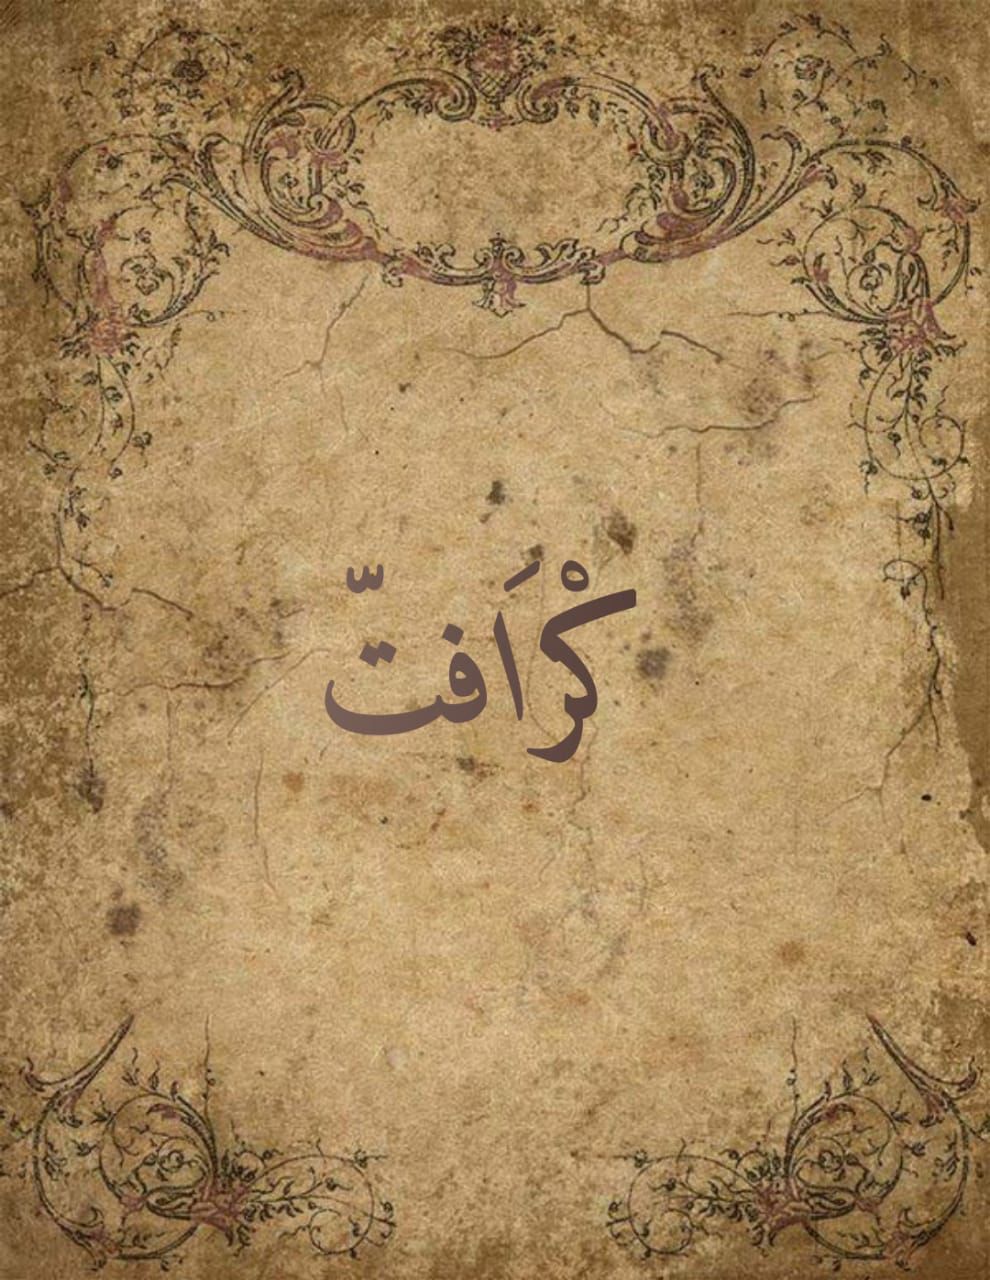 كْرَافتّ